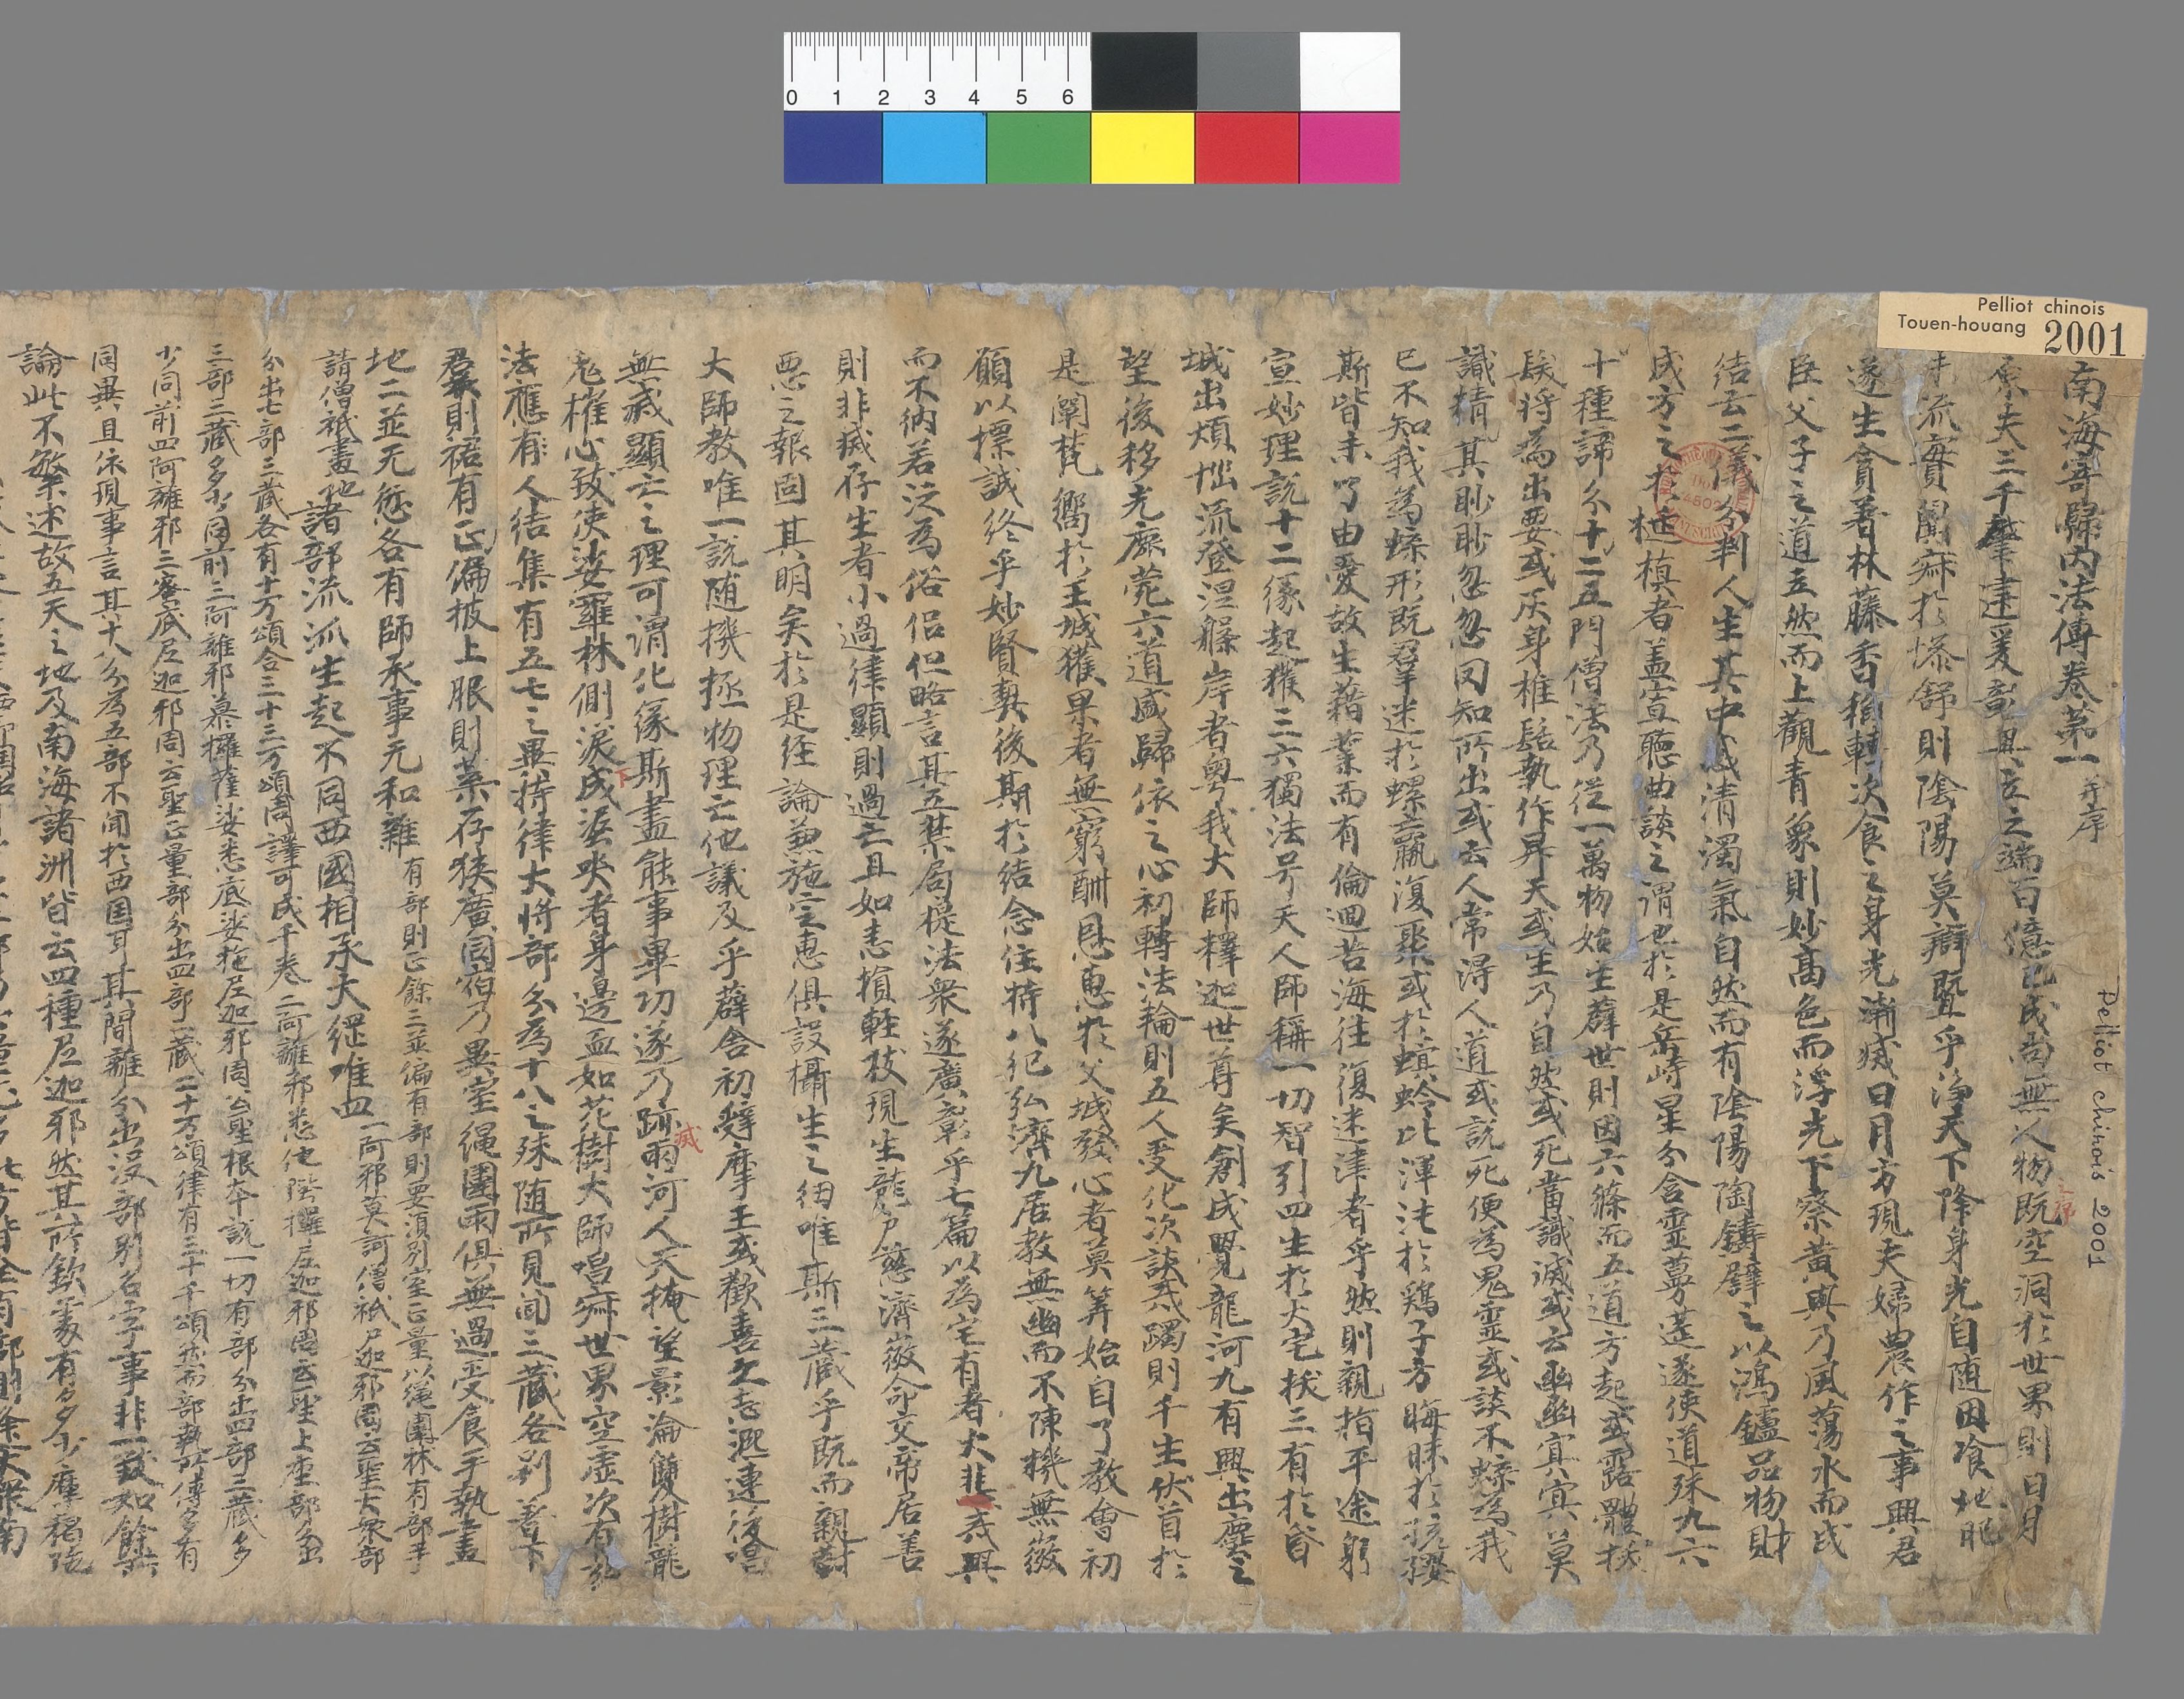 Pelliot chinois
Touen-houang 2001
南海寄歸內法傳卷第一并序
原夫三千肇建爰彰興立之端百億已成尚無人物既空洞於世界則日月
未流實闃寂於慘舒則陰陽莫辯暨乎淨天下降身光自随因飡地肥
遂生貪著林藤香稻轉次食之身光漸滅日月方現夫婦農作之事興君
臣父子之道立然而上觀青象則妙高色而浮光下察黃輿乃風蕩水而成
結云二儀分判人生其中感清濁氣自然而有陰陽陶鑄譬之以鴻鑪品物財
成方之於埏埴者盖寡聽曲談之謂也於是岳峙星分含靈蔓莚遂使道殊九六
十種諦分廿五門僧法乃從一萬物始生薜世則因六條而五道方起或露體拔
髮将為出要或灰身椎髻執作昇天或生乃自然或死當識滅或云幽幽冥冥莫
識精其眇眇忽忽罔知所出或云人常得人道或說死便為鬼靈或談不蝶為我
已不知我為蝶形既群迷於螺蠃復聚或於螟蛉比渾沌於鷄子方晦昧於孩嬰
斯皆未了由愛故生藉業而有倫迴苦海往復迷津者乎然則親指平途躬
宣妙理說十二緣起獲三六獨法号天人師稱一切智引四生於火宅拔三有於昏
城出煩惱流登涅槃岸者粵我大師釋迦世尊矣創成覺龍河九有興出塵之
望後移光鹿菀六道盛歸依之心初轉法輪則五人受化次談戒躅則千生伏首於
是闡梵嚮於王城獲果者無窮酬恩惠於父城發心者莫筭始自了教會初
願以標誠終乎妙賢契後期於結念住持八紀弘濟九居教無幽而不陳機無微
而不納若泛為俗侶但略言其五禁局提法衆遂廣彰乎七篇以為宅有者大非戒興
則非滅存生者小過律顯則過亡且如恚損輕枝現生龍戶慈濟微命交帝居善
惡之報固其明矣於是經論兼施定惠俱設攝生之紐唯斯三藏乎既而親對
大師教唯一說随機拯物理亡他議及乎薜舍初辭摩王或歡喜之志凞連後唱
無滅顯亡之理可謂化緣斯盡能事畢功遂乃跡滅兩河人天掩望影淪雙樹龍
鬼摧心致使娑羅林側淚下成泥哭者身邊血如花樹大師唱寂世界空虛次有弘
法應有人結集有五七之異持律大将部分為十八之殊随所見聞三藏各別著下
裙則裙有正偏披上服則葉存狹廣同宿乃異室繩圍兩俱無過受食手執畫
地二並无愆各有師承事无和雜有部則正餘三並偏有部則要須別室正量以繩圍林有部手
請僧祇畫地諸部流派生起不同西國相承大綱唯四一阿邪莫訶僧祇尼迦邪周云聖大衆部
分出七部三藏各有十万頌合三十三万頌周譯可成千卷二阿離邪悉他陛攞尼迦邪周云聖上座部分出
三部三藏多少同前三阿離邪慕攞薩婆悉底婆拖尼迦邪周云聖根本說一切有部分出四部三藏多
少同前四阿離邪三蜜底尼迦邪周云聖正量部分出四部三藏二十万頌律有三十千頌然而部執所傳多有
同異且依現事言其十八分為五部不聞於西國耳其間離分出沒部別名字事非一致如餘所
論此不繁述故五天之地及南海諸洲皆云四種尼迦邪然其所欽處有多少摩褐陀
Pelliot chinois 2001